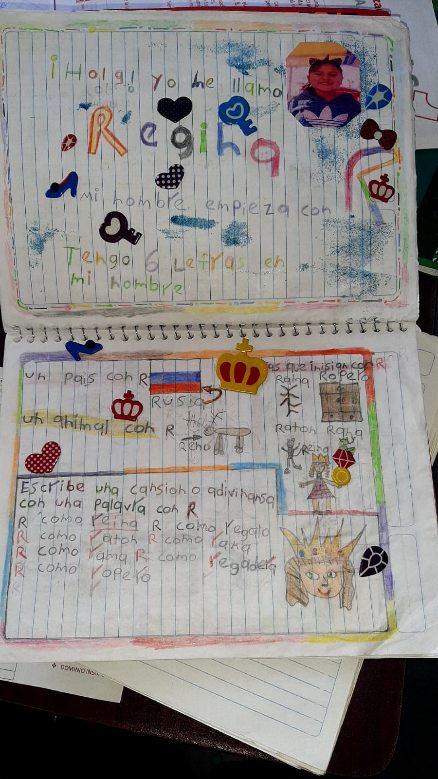 ¡Hola! yo me llamo
Regina
mi nombre empieza con
R
Tengo 6 Letras en
mi nombre
un pais con R
Rusia
un animal con R
Reno
as que inisian con R
Rama Ropero
Raton Rana
Reina
Escribe una cansion o adivinansa
con una palavra con R
R como reina R como regalo
R como raton R como rana
R como rama R como regadera
R como ropero